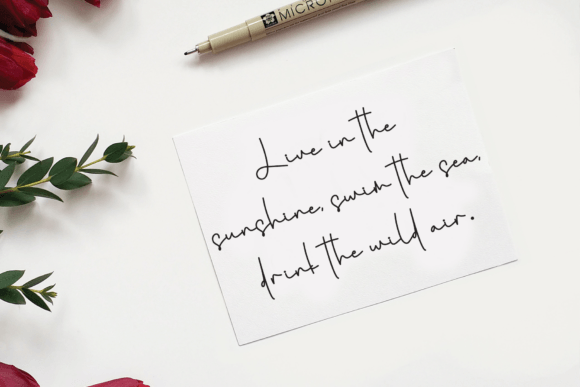 MICRON
Live in the
sunshine, swim the sea,
drink the wild air.